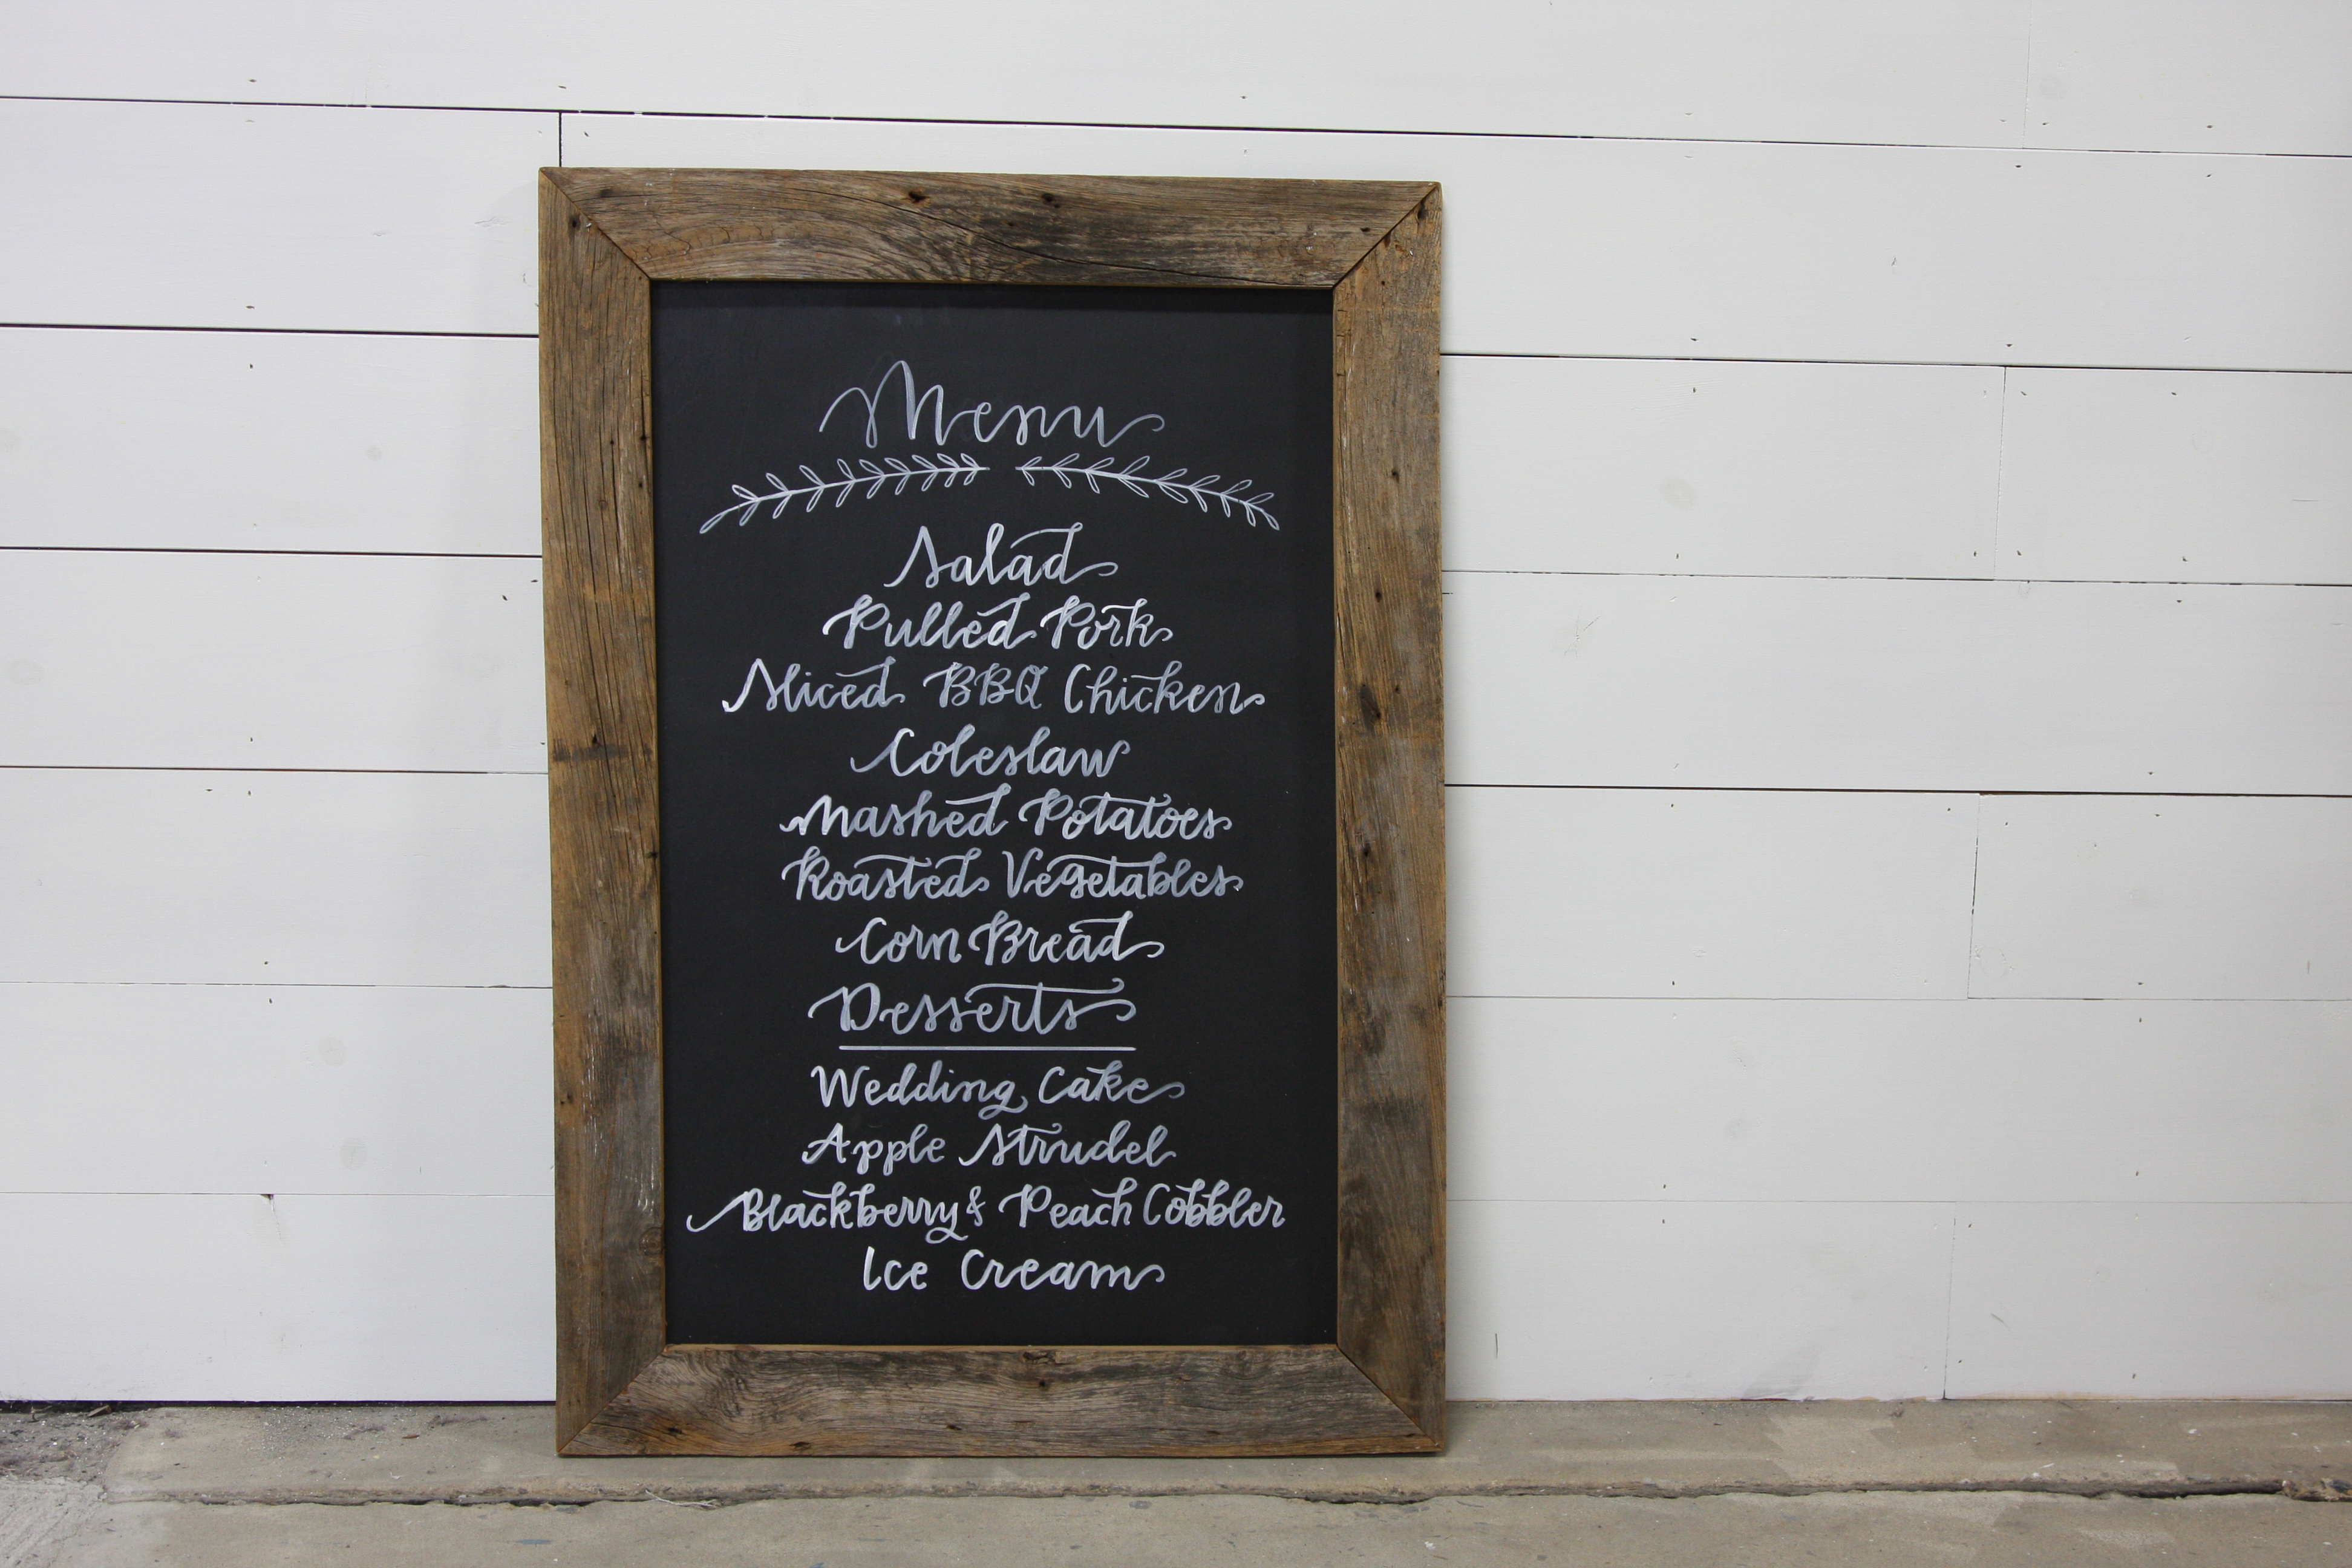 Menu
Salad
Pulled Pork
Sliced BBQ Chicken
Coleslaw
Mashed Potatoes
Roasted Vegetables
Corn Bread
Desserts
Wedding Cake
Apple Strudel
Blackberry & Peach Cobbler
Ice Cream